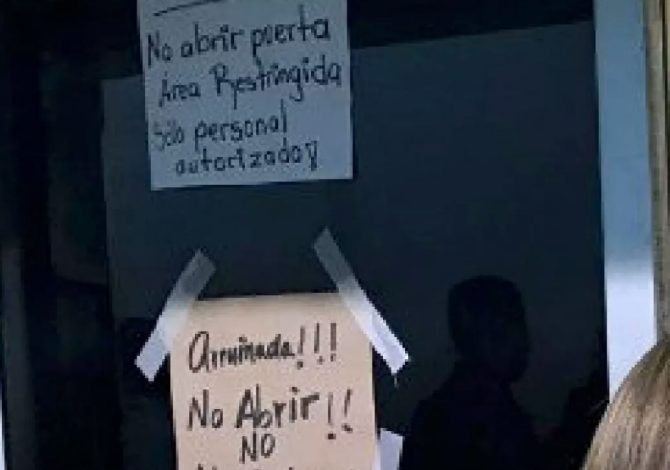 No abrir puerta
Área Restringida
Sólo personal
autorizado!
Arruinada!!!
No Abrir!!
NO